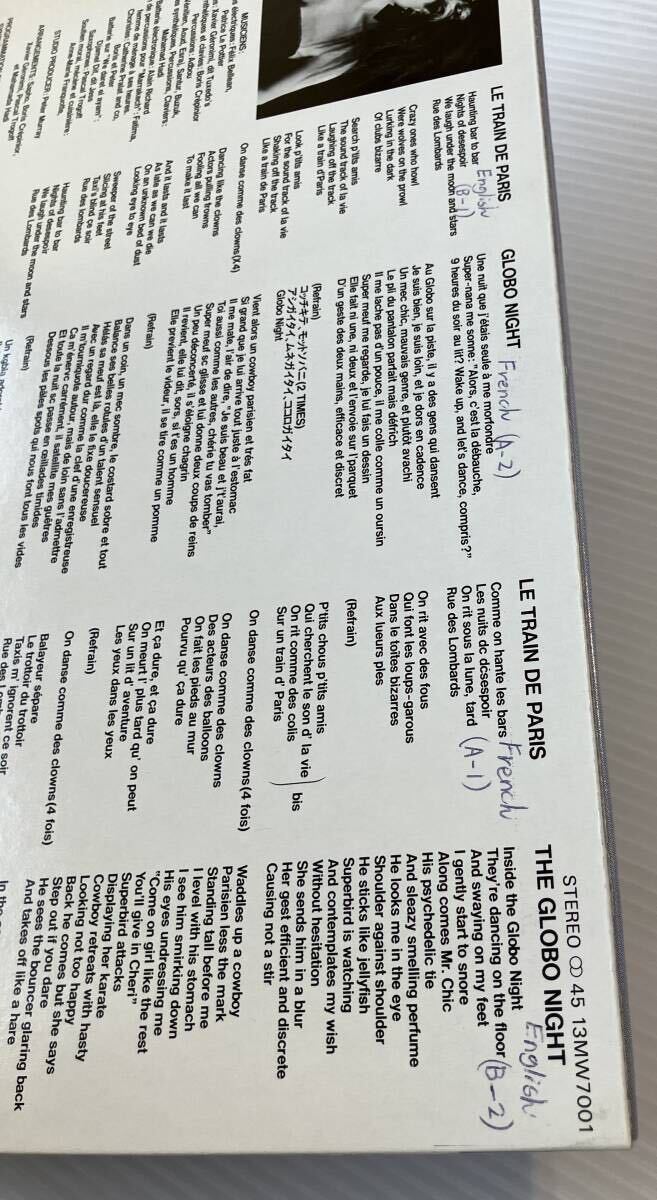 STEREO ∞ 45 13MW7001
MUSICIENS:
s électriques: Félix Belleau,
Patrice Le Portier
s: Xavier Géronimi, dit Tuxedo's
thétiques et claviers: Boris Crépinior
Percussions: Adbou
Mohamed Hadi
Batterie électronique: Alain Richard
de percussions pour "Marrakech": Fatima,
femme de ménage à ses heures.
Christian, Catherine, Pralat and co.
Batterie sur "We dare! el eyem":
Boris et Peter
Djamel Dif, dit Jess
Saxophones: Pascal Trogoff
Soutien moral, mécène et cuisinière:
Anne-Marie Franquette.
STUDIO PRODUCER: Peter Murray
ARRANGEMENTS: Sapho, Boris Crépinior,
Xavier Géronimi, Pascal Trogoff
et Mohammed Hadi
LE TRAIN DE PARIS English (B-1)
Haunting bar to bar
Nights of desespoir
We laugh under the moon and stars
Rue des Lombards
Crazy ones who howl
Were wolves on the prowl
Lurking in the dark
Of clubs bizarre
Search p'tits amis
The sound track of la vie
Laughing off the track
Like a train d'Paris
Look p'tits amis
For the sound track of la vie
Shaking off the track
Like a train de Paris
On danse comme des clowns(X4)
Dancing like the clowns
Actors pulling frowns
Fooling all we can
To make it last
And it lasts and it lasts
As late as we can we die
On an unknown bed of dust
Looking eye to eye
Sweeper of the street
Slicing at his feet
Taxi's blind ça soir
Rue des lombards
Haunting bar to bar
Nights of desespoir
We laugh under the moon and stars
Rue des Lombards
GLOBO NIGHT French (A-2)
Une nuit que j'étais seule à me morfondre
Super-nana me some: "Alors, c'est la débauche,
9 heures du soir au lit? Wake up, and let's dance, compris?"
Au Globo sur la piste, il y a des gens qui dansent
Je suis bien, je suis loin, et je dors en cadence
Un mec chic, mauvais genre, et plutôt avachi
Le pli du pantalon parfait mais défrichi
Il me lache pas d'un pouce, il me colle comme un oursin
Super neuf me regarde, je lui fais un dessin
Elle fait ni une, ni deux et l'envoie sur l'parquet
D'un geste des deux mains, efficace et discret
(Refrain)
コッチキテ、モットソバニ(2 TIMES)
アシガイタイ、ムネガイタイ、ココロガイタイ
Globo Night
Vient alors un cowboy parisien et très fat
Si grand que je lui arrive tout juste à l'estomac
Il me mate, l'air de dire, "Je suis beau et j't'aurai,
Toi aussi comme les autres, chérie tu vas tomber"
Super meuf sc glisse et lui donne deux coups de reins
Un peu déconcerté, il s'éloigne chagrin
Il revient, elle lui dit, sors, si t'es un homme
Elle previent le videur, il se tire comme un pomme
(Refrain)
Dans un coin, un mec sombre, le costard sobre et tout
Balance ses belles rotules d'un talent sensuel
Hélás sa meuf est là, elle le fixe doucereuse
Avec un regard dur comme la clef d'une enregistreuse
Il m'tourniquote autour, mais de loin sans l'admettre
Ca m'énervc carrément, il satellite mes guêtres
Et toute la nuit sc passe en œillades timides
Dessous les pâles spots qui nous font tous les vides
(Refrain)
LE TRAIN DE PARIS French (A-1)
Comme on hante les bars
Les nuits dc dcsespoir
On rit sous la lune, tard
Rue des Lombards
On rit avec des fous
Qui font les loups-garous
Dans le toîtes bizarres
Aux lueurs ples
(Refrain)
P'tits chous p'tits amis
Qui cherchent le son d' la vie
On rit comme des colis
Sur un train d' Paris
) bis
On danse comme des clowns(4 fois)
On danse comme des clowns
Des acteurs des balloons
On fait les pieds au mur
Pourvu qu' ça dure
Et ça dure, et ça dure
On meurt l' plus tard qu' on peut
Sur un lit d' aventure
Les yeux dans les yeux
(Refrain)
On danse comme des clowns(4 fois)
Balayeur sépare
Le trottoir du trottoir
Taxis m' ignorent ce soir
Rue des Lombards
THE GLOBO NIGHT English (B-2)
Inside the Globo Night
They're dancing on the floor
And swaying on my feet
I gently start to snore
Along comes Mr. Chic
His psychedelic tie
And sleazy smelling perfume
He looks me in the eye
Shoulder against shoulder
He sticks like jellyfish
Superbird is watching
And contemplates my wish
Without hesitation
She sends him in a blur
Her gest efficient and discrete
Causing not a stir
Waddles up a cowboy
Parisien less the mark
Standing tall before me
I level with his stomach
I see him smirking down
His eyes undressing me
"Come on girl like the rest
You'll give in Cheri"
Superbird attacks
Displaying her karate
Cowboy retreats with hasty
Looking not too happy
Back he comes but she says
Step out if you dare
He sees the bouncer glaring back
And takes off like a hare